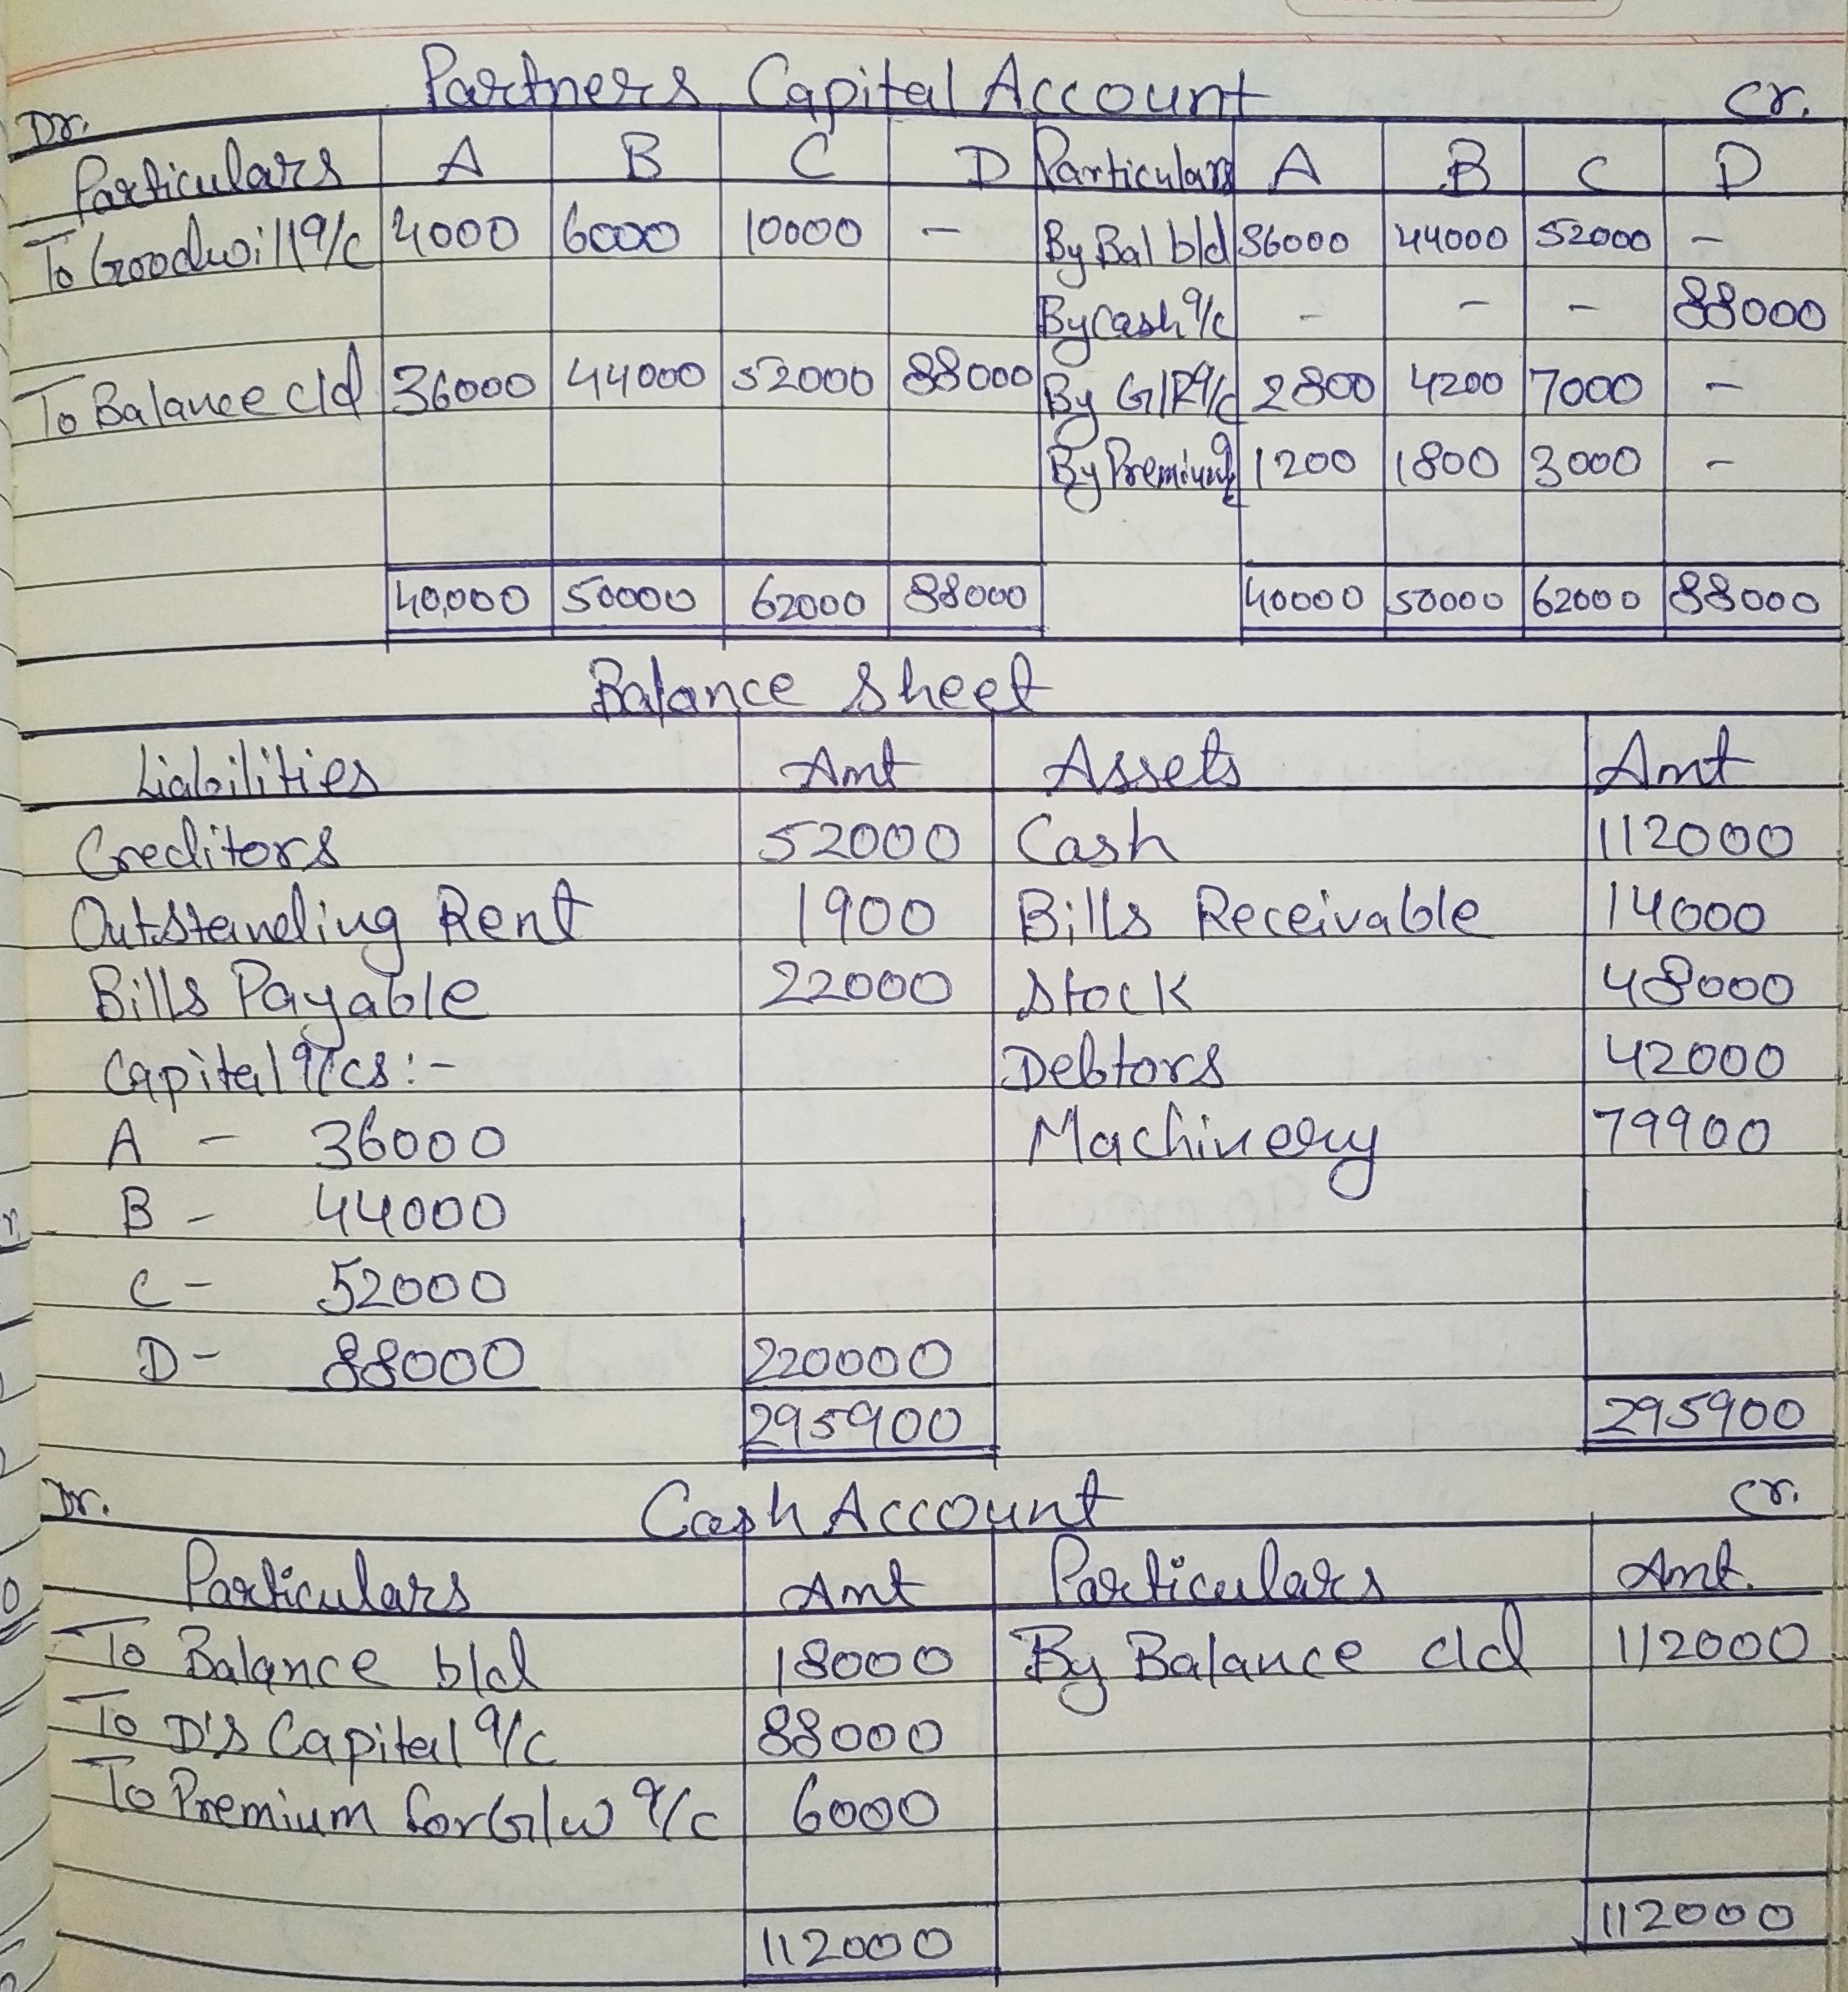 Partners Capital Account
Dr. Cr.
Particulars A B C D Particulars A B C D
To Goodwill a/c 4000 6000 10000 - By Bal b/d 36000 44000 52000 -
By Cash a/c - - - 88000
To Balance c/d 36000 44000 52000 88000 By G/R a/c 2800 4200 7000 -
By Premium a/c 1200 1800 3000 -
40,000 50000 62000 88000 40000 50000 62000 88000
Balance Sheet
Liabilities Amt Assets Amt
Creditors 52000 Cash 112000
Outstanding Rent 1900 Bills Receivable 14000
Bills Payable 22000 Stock 48000
Capital a/cs:- Debtors 42000
A - 36000 Machinery 79900
B - 44000
C - 52000
D - 88000 220000
295900 295900
Dr. Cash Account Cr.
Particulars Amt Particulars Amt.
To Balance b/d 18000 By Balance c/d 112000
To D's Capital a/c 88000
To Premium for G/w a/c 6000
112000 112000